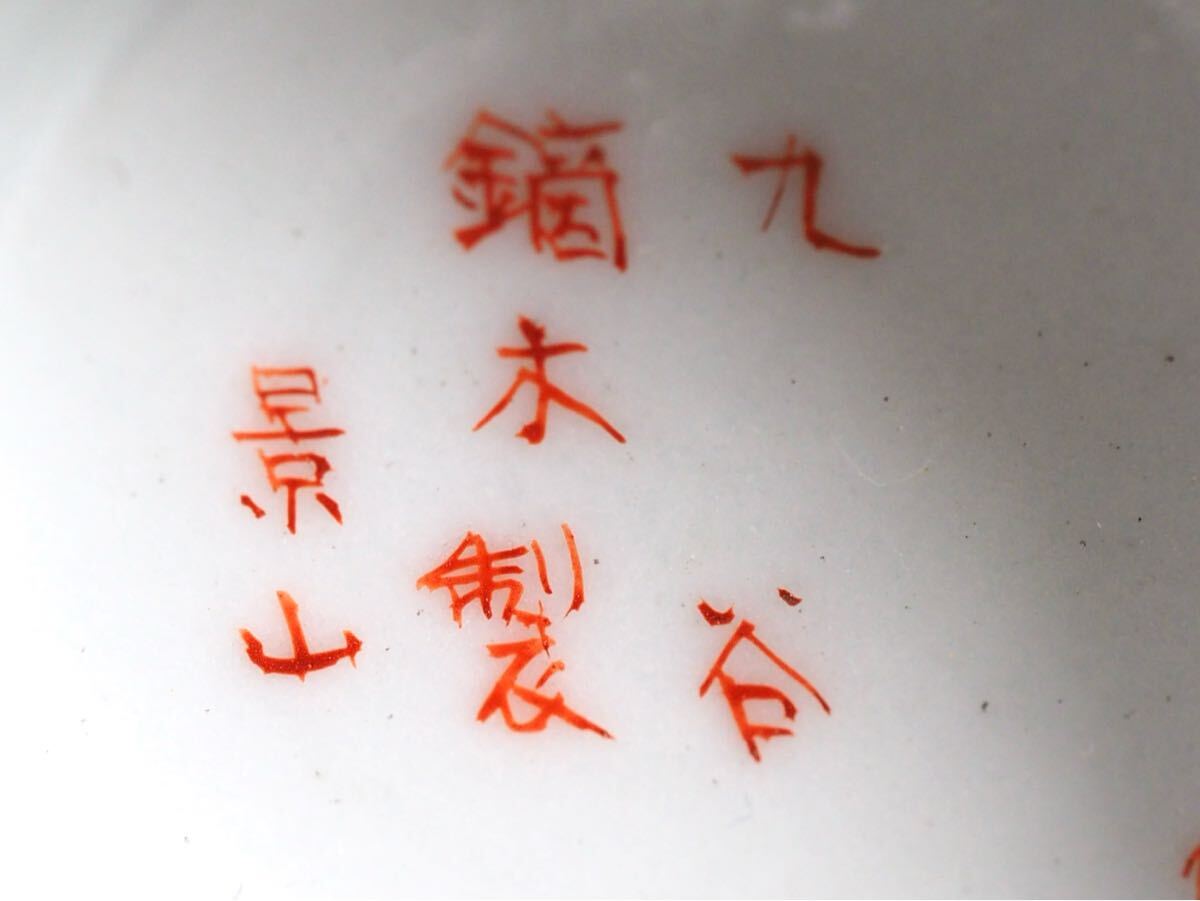 九谷
鏑木製
景山